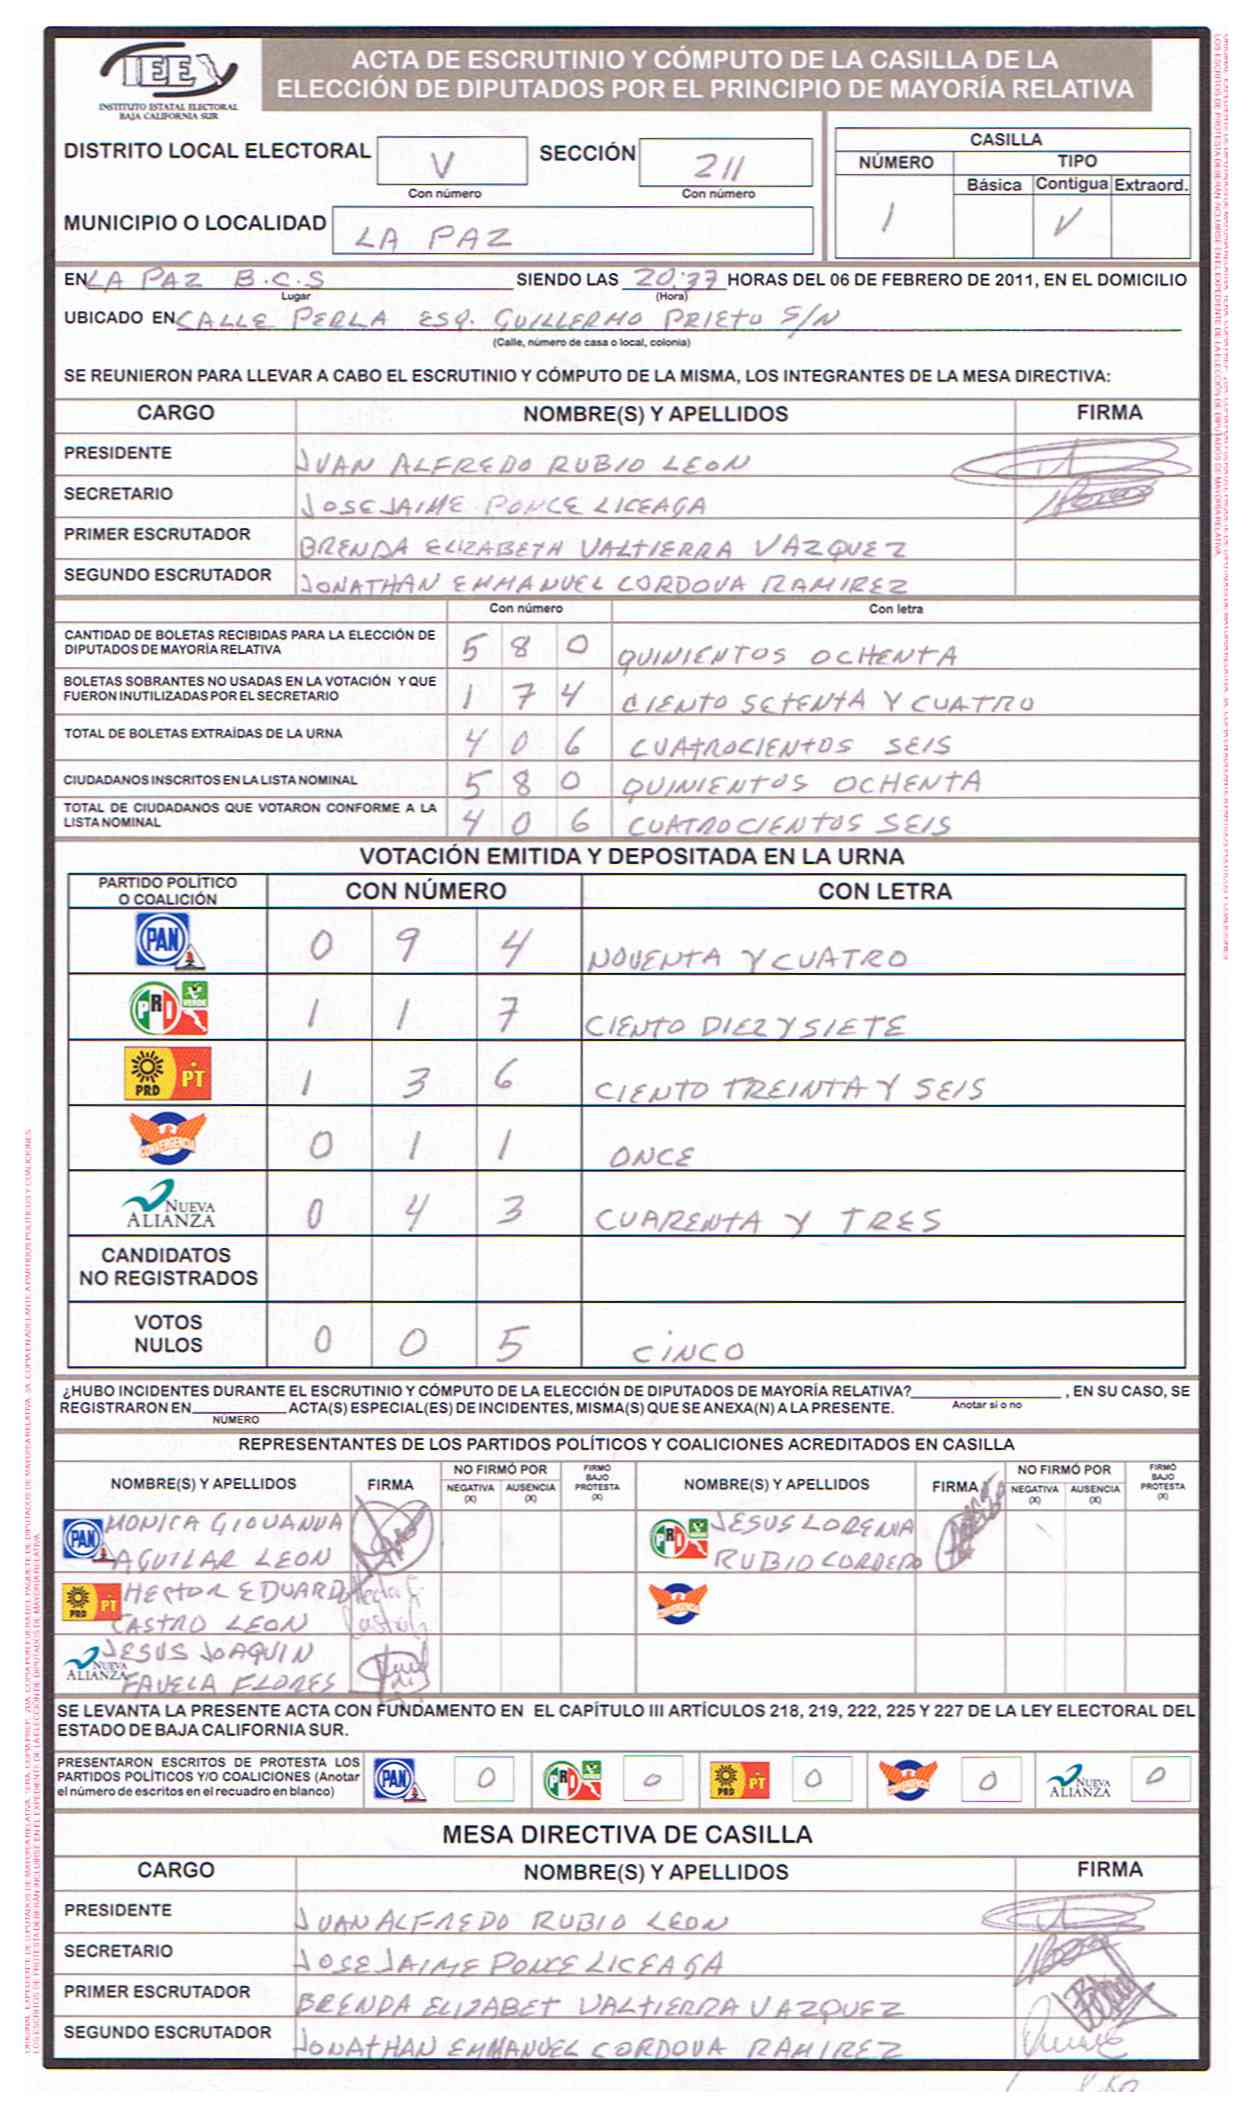 IEE
INSTITUTO ESTATAL ELECTORAL
BAJA CALIFORNIA SUR
ACTA DE ESCRUTINIO Y CÓMPUTO DE LA CASILLA DE LA
ELECCIÓN DE DIPUTADOS POR EL PRINCIPIO DE MAYORÍA RELATIVA
DISTRITO LOCAL ELECTORAL V SECCIÓN 211
Con número Con número
MUNICIPIO O LOCALIDAD LA PAZ
CASILLA
NÚMERO TIPO
Básica Contigua Extraord.
1 V
EN LA PAZ B.C.S SIENDO LAS 20:37 HORAS DEL 06 DE FEBRERO DE 2011, EN EL DOMICILIO
Lugar (Hora)
UBICADO EN CALLE PERLA ESQ. GUILLERMO PRIETO S/N
(Calle, número de casa o local, colonia)
SE REUNIERON PARA LLEVAR A CABO EL ESCRUTINIO Y CÓMPUTO DE LA MISMA, LOS INTEGRANTES DE LA MESA DIRECTIVA:
CARGO NOMBRE(S) Y APELLIDOS FIRMA
PRESIDENTE JUAN ALFREDO RUBIO LEON
SECRETARIO JOSE JAIME PONCE LICEAGA
PRIMER ESCRUTADOR BRENDA ELIZABETH VALTIERRA VAZQUEZ
SEGUNDO ESCRUTADOR JONATHAN EMMANUEL CORDOVA RAMIREZ
Con número Con letra
CANTIDAD DE BOLETAS RECIBIDAS PARA LA ELECCIÓN DE
DIPUTADOS DE MAYORÍA RELATIVA 5 8 0 QUINIENTOS OCHENTA
BOLETAS SOBRANTES NO USADAS EN LA VOTACIÓN Y QUE
FUERON INUTILIZADAS POR EL SECRETARIO 1 7 4 CIENTO SETENTA Y CUATRO
TOTAL DE BOLETAS EXTRAÍDAS DE LA URNA 4 0 6 CUATROCIENTOS SEIS
CIUDADANOS INSCRITOS EN LA LISTA NOMINAL 5 8 0 QUINIENTOS OCHENTA
TOTAL DE CIUDADANOS QUE VOTARON CONFORME A LA
LISTA NOMINAL 4 0 6 CUATROCIENTOS SEIS
VOTACIÓN EMITIDA Y DEPOSITADA EN LA URNA
PARTIDO POLÍTICO
O COALICIÓN CON NÚMERO CON LETRA
PAN 0 9 4 NOVENTA Y CUATRO
PRI VERDE 1 1 7 CIENTO DIEZ Y SIETE
PRD PT 1 3 6 CIENTO TREINTA Y SEIS
CONVERGENCIA 0 1 1 ONCE
NUEVA ALIANZA 0 4 3 CUARENTA Y TRES
CANDIDATOS
NO REGISTRADOS
VOTOS
NULOS 0 0 5 CINCO
¿HUBO INCIDENTES DURANTE EL ESCRUTINIO Y CÓMPUTO DE LA ELECCIÓN DE DIPUTADOS DE MAYORÍA RELATIVA? , EN SU CASO, SE
Anotar si o no
REGISTRARON EN ACTA(S) ESPECIAL(ES) DE INCIDENTES, MISMA(S) QUE SE ANEXA(N) A LA PRESENTE.
NÚMERO
REPRESENTANTES DE LOS PARTIDOS POLÍTICOS Y COALICIONES ACREDITADOS EN CASILLA
NOMBRE(S) Y APELLIDOS FIRMA NO FIRMÓ POR NEGATIVA (X) AUSENCIA (X) FIRMÓ BAJO PROTESTA (X) NOMBRE(S) Y APELLIDOS FIRMA NO FIRMÓ POR NEGATIVA (X) AUSENCIA (X) FIRMÓ BAJO PROTESTA (X)
PAN MONICA GIOVANNA
AGUILAR LEON
PRI JESUS LORENIA
RUBIO CORDERO
PRD PT HECTOR EDUARDO
CASTRO LEON
NUEVA ALIANZA JESUS JOAQUIN
FAVELA FLORES
SE LEVANTA LA PRESENTE ACTA CON FUNDAMENTO EN EL CAPÍTULO III ARTÍCULOS 218, 219, 222, 225 Y 227 DE LA LEY ELECTORAL DEL
ESTADO DE BAJA CALIFORNIA SUR.
PRESENTARON ESCRITOS DE PROTESTA LOS
PARTIDOS POLÍTICOS Y/O COALICIONES (Anotar
el número de escritos en el recuadro en blanco)
PAN 0 PRI 0 PRD PT 0 CONVERGENCIA 0 NUEVA ALIANZA 0
MESA DIRECTIVA DE CASILLA
CARGO NOMBRE(S) Y APELLIDOS FIRMA
PRESIDENTE JUAN ALFREDO RUBIO LEON
SECRETARIO JOSE JAIME PONCE LICEAGA
PRIMER ESCRUTADOR BRENDA ELIZABET VALTIERRA VAZQUEZ
SEGUNDO ESCRUTADOR JONATHAN EMMANUEL CORDOVA RAMIREZ